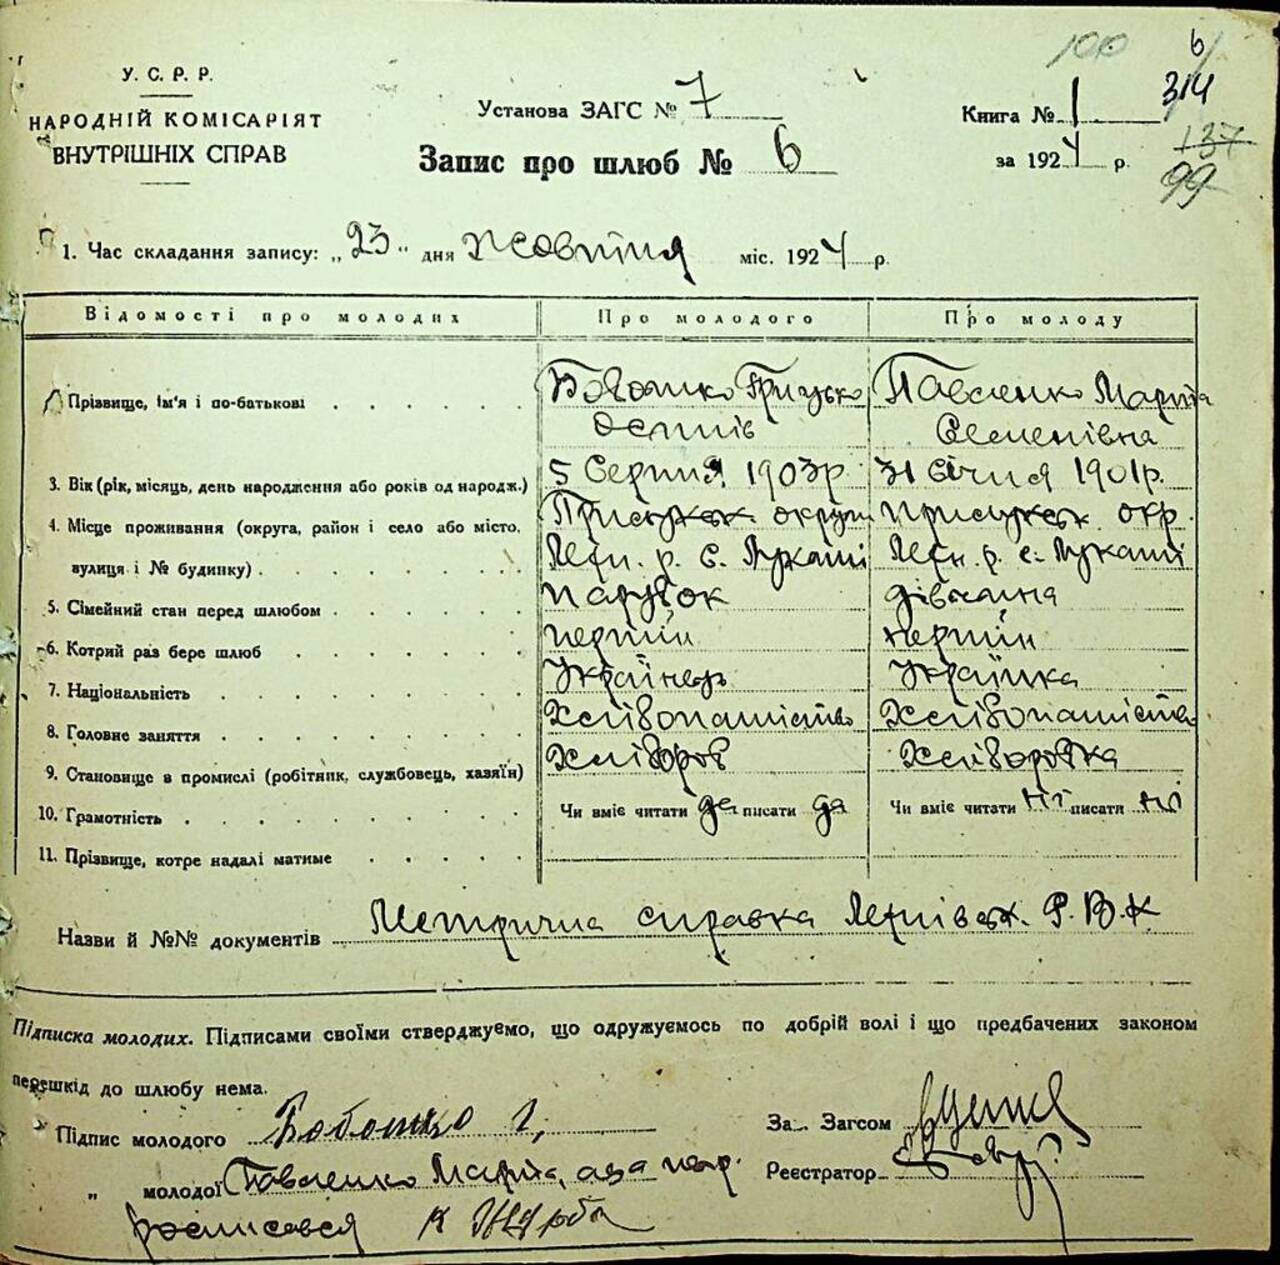 100
6
У. С. Р. Р.
НАРОДНІЙ КОМІСАРІЯТ
ВНУТРІШНІХ СПРАВ
Установа ЗАГС № 7
Запис про шлюб № 6
Книга № 1
314
за 1924 р.
137
99
1. Час складання запису: „23“ дня жовтня міс. 1924 р.
Відомості про молодих
Про молодого
Про молоду
Прізвище, ім'я і по-батькові
Бобошко Грицько
Осипів
Павленко Марія
Семенівна
3. Вік (рік, місяць, день народження або років од народж.)
5 Серпня 1903 р.
31 січня 1901 р.
4. Місце проживання (округа, район і село або місто,
вулиця і № будинку)
округи
р. с. Лукаші
окр.
р. с. Лукаші
5. Сімейний стан перед шлюбом
парубок
дівчина
6. Котрий раз бере шлюб
перший
перший
7. Національність
Українець
Українка
8. Головне заняття
Хлібопашество
Хлібопашество
9. Становище в промислі (робітник, службовець, хазяїн)
Хлібороб
Хлиборобка
10. Грамотність
Чи вміє читати да писати да
Чи вміє читати ні писати ні
11. Прізвище, котре надалі матиме
Назви й №№ документів Метрична справка Р. В. К.
Підписка молодих. Підписами своїми стверджуємо, що одружуємось по добрій волі і що предбачених законом
перешкід до шлюбу нема.
Підпис молодого Бобошко Г,
За. Загсом
„ молодої Павленко Марія, а за неї
Реєстратор
росписався